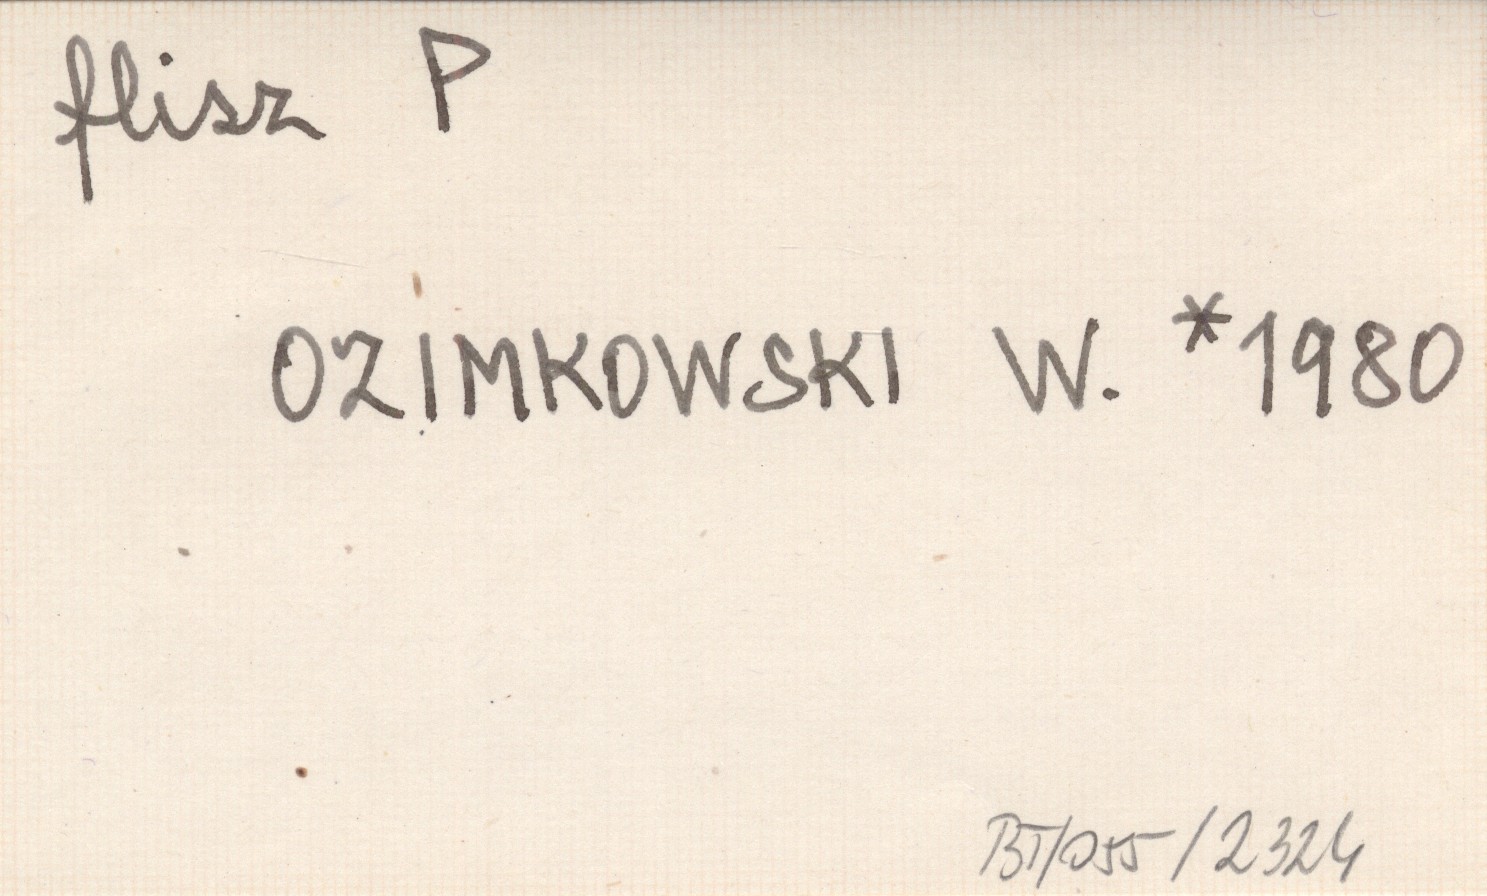 flisz P
OZIMKOWSKI W. *1980
BT/055/2324